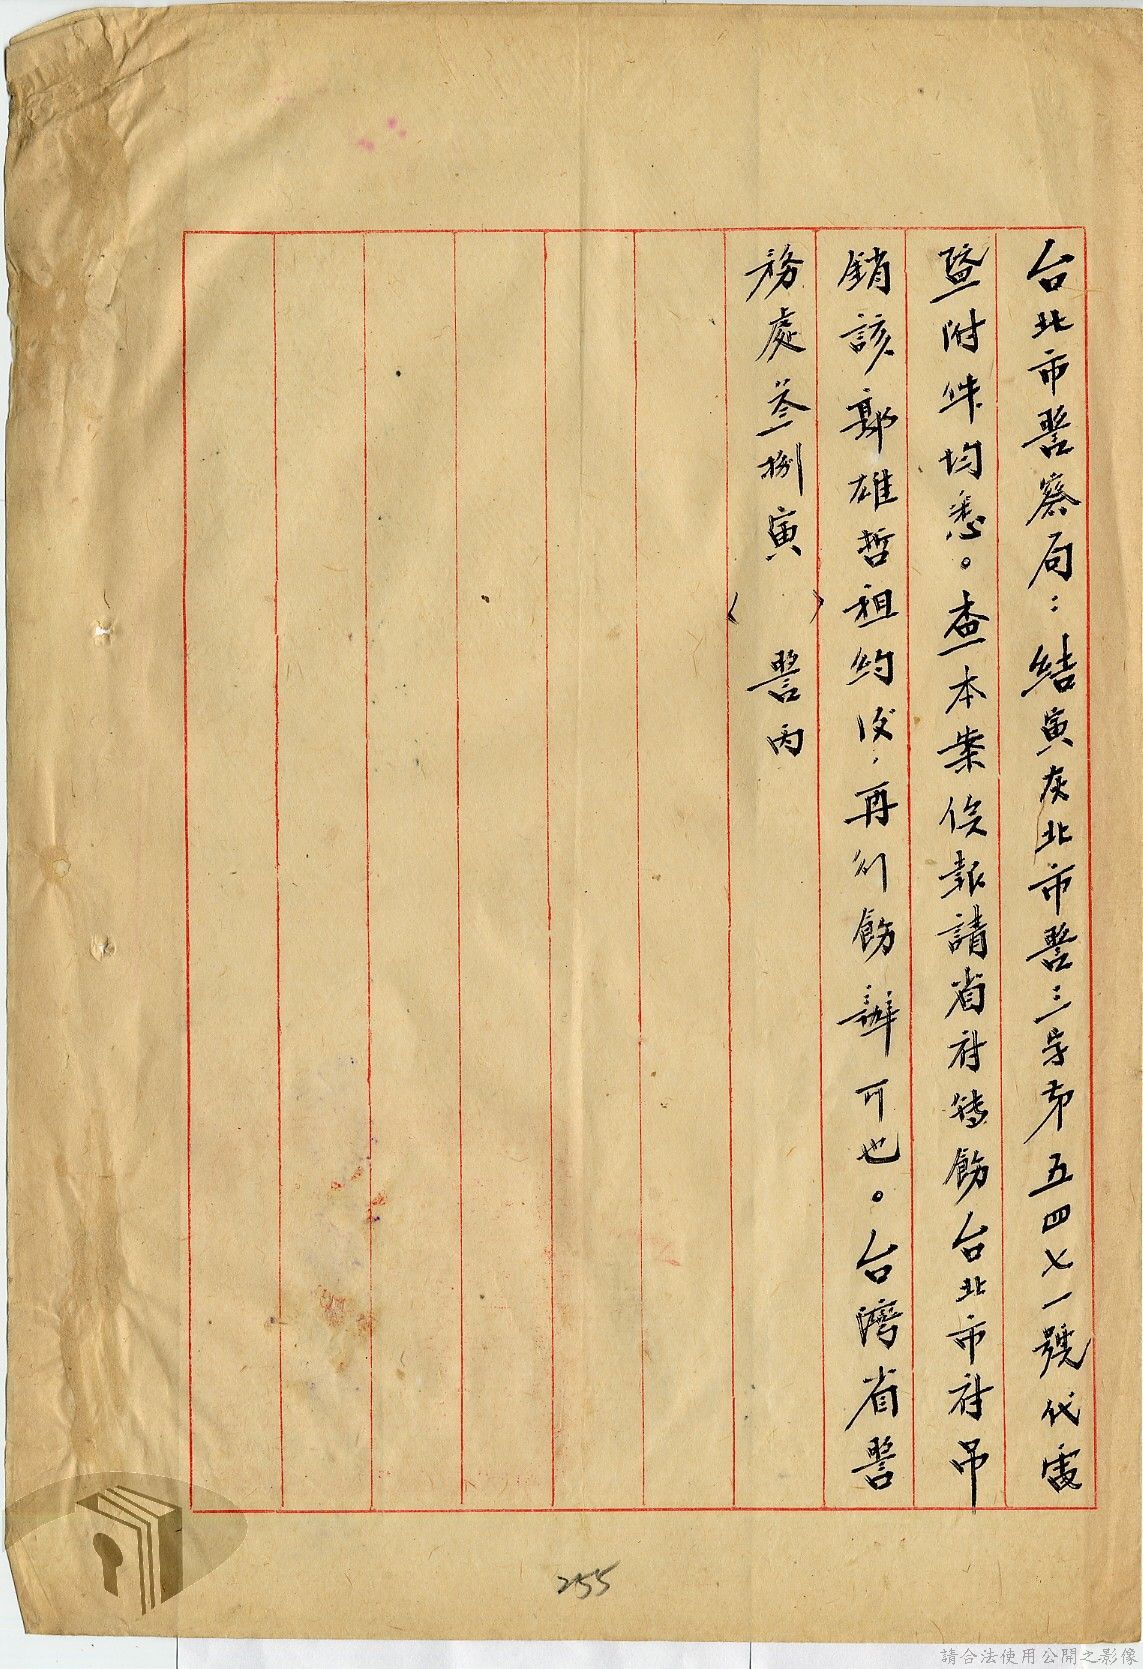 台北市警察局：結寅灰北市警三字第五四七一號代電
暨附件均悉。查本案俟報請省府轉飭台北市府吊
銷該郭雄哲租約後，再行飭辦可也。台灣省警
務處叁捌寅（　）警丙
255
請合法使用公開之影像